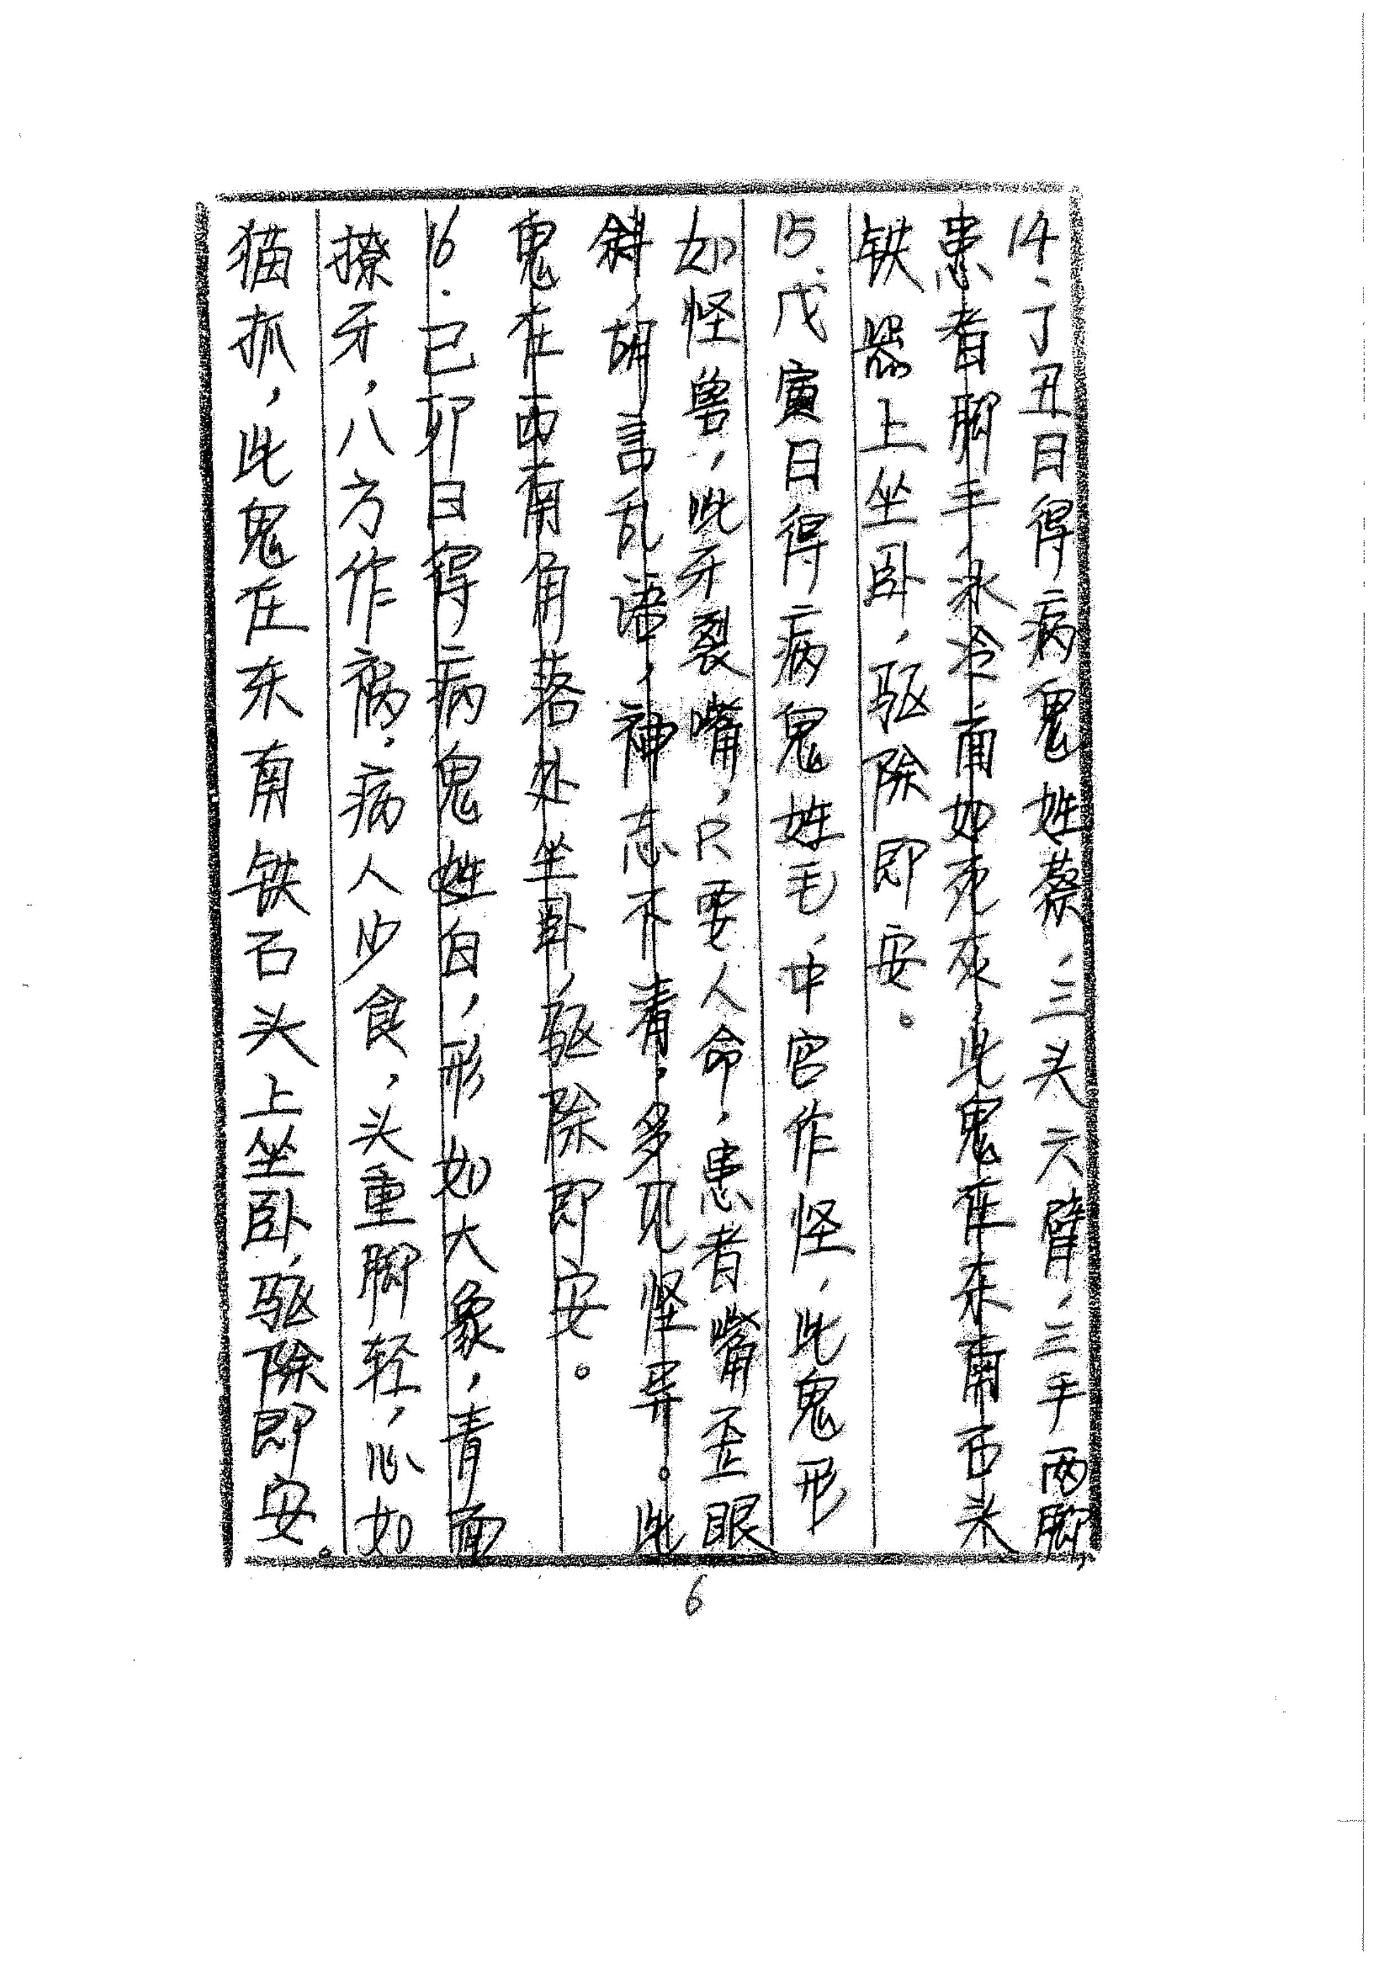 14、丁丑日得病鬼姓蔡，三头六臂，三手两脚，
患者脚手冰冷面如死灰，此鬼在东南石头
铁器上坐卧，驱除即安。
15、戊寅日得病鬼姓毛，中宫作怪，此鬼形
如怪兽，呲牙裂嘴，只要人命，患者嘴歪眼
斜，胡言乱语，神志不清，多见怪异。此
鬼在西南角落处坐卧，驱除即安。
16.己卯日得病鬼姓白，形如大象，青面
撩牙，八方作祸，病人少食，头重脚轻，心如
猫抓，此鬼在东南铁石头上坐卧，驱除即安。
6